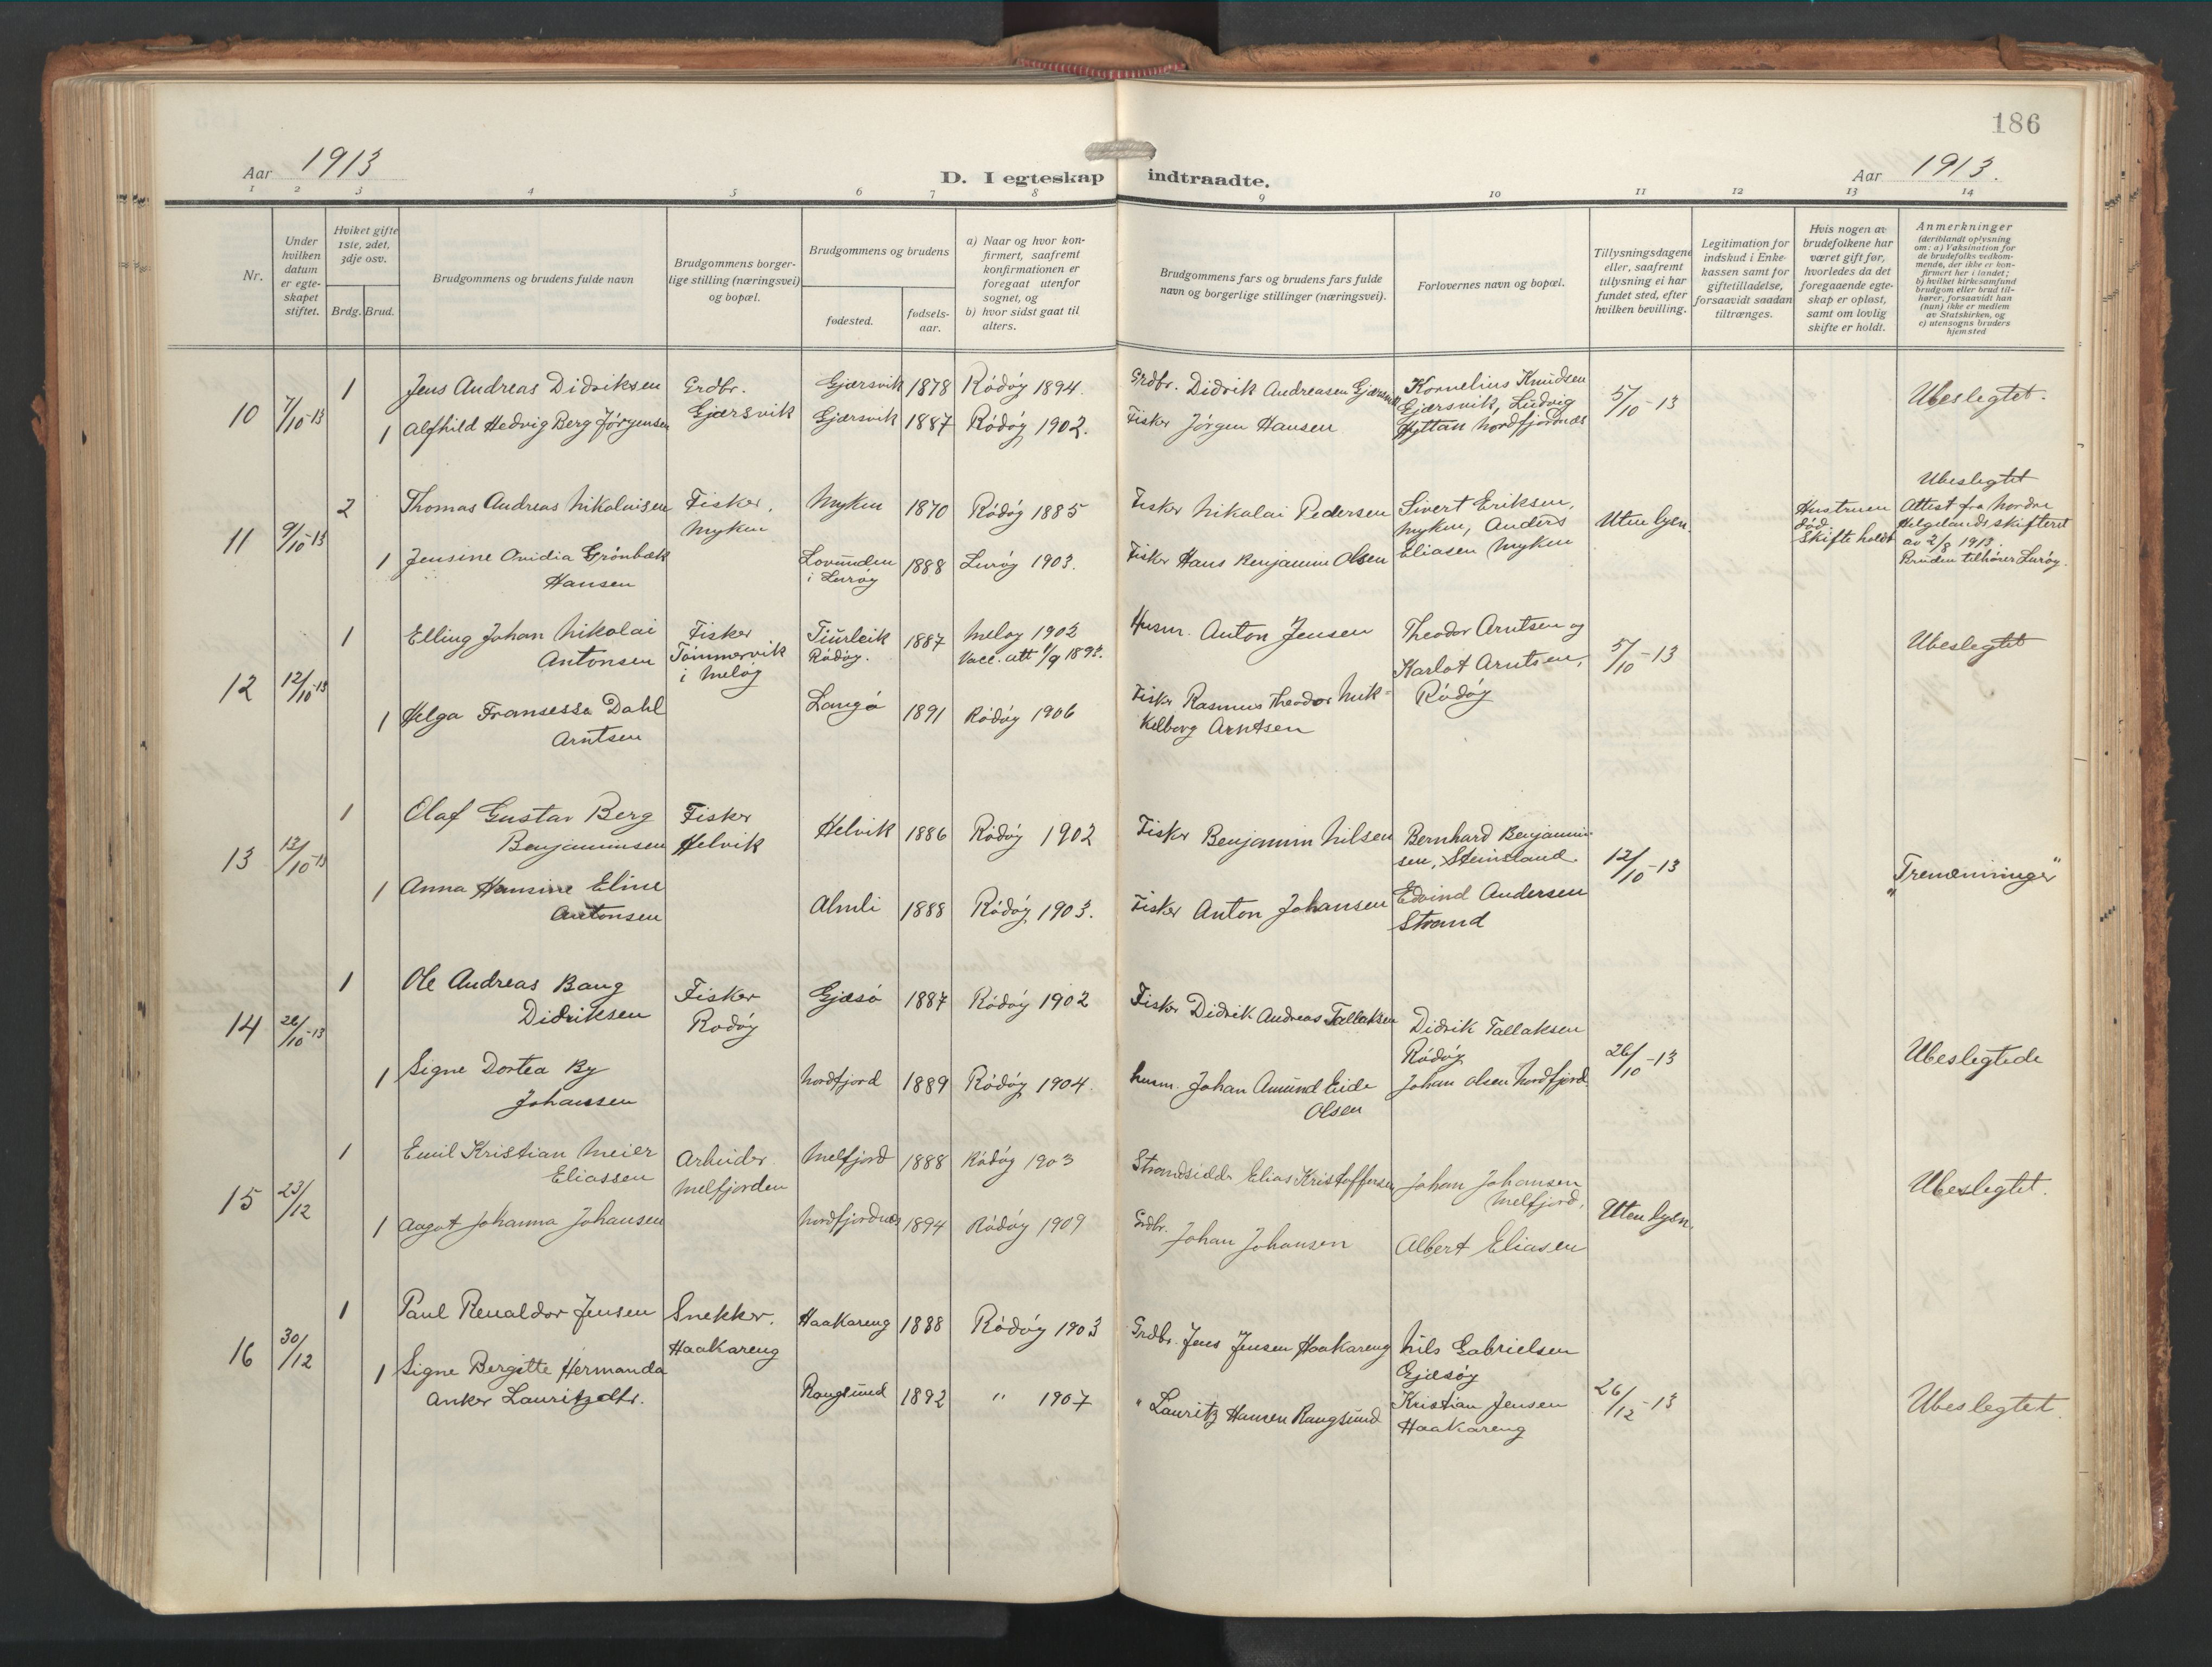 186
Aar 1913
D. I egteskap indtraadte.
Aar 1913.
1 2 3 4 5 6 7 8 9 10 11 12 13 14
Nr.
Under hvilken datum er egteskapet stiftet.
Hviket gifte 1ste, 2det, 3dje osv.
Brdg. Brud.
Brudgommens og brudens fulde navn
Brudgommens borgerlige stilling (næringsvei) og bopæl.
Brudgommens og brudens
fødested.
fødselsaar.
a) Naar og hvor konfirmert, saafremt konfirmationen er foregaat utenfor sognet, og
b) hvor sidst gaat til alters.
Brudgommens fars og brudens fars fulde navn og borgerlige stillinger (næringsvei).
Forlovernes navn og bopæl.
Tillysningsdagene eller, saafremt tillysning ei har fundet sted, efter hvilken bevilling.
Legitimation for indskud i Enkekassen samt for giftetilladelse, forsaavidt saadan tiltrænges.
Hvis nogen av brudefolkene har været gift før, hvorledes da det foregaaende egteskap er opløst, samt om lovlig skifte er holdt.
Anmerkninger
(deriblandt oplysning om: a) Vaksination for de brudefolks vedkommende, der ikke er konfirmert her i landet; b) hvilket kirkesamfund brudgom eller brud tilhører, forsaavidt han (hun) ikke er medlem av Statskirken, og c) utensogns bruders hjemsted
10 7/10-13
1 Jens Andreas Didriksen Grdbr. Gjærsvik Gjærsvik 1878 Rødøy 1894. Grdbr. Didrik Andreasen Gjærsvik
1 Alfhild Hedvig Berg Jørgensen Gjærsvik 1887 Rødøy 1902. Fisker Jørgen Hansen
Kornelius Knudsen
Gjærsvik, Ludvig
Hyttan Nordfjordnes
5/10-13
Ubeslegtet.
11 9/10-13
2 Thomas Andreas Nikolaisen Fisker, Myken Myken 1870 Rødøy 1885 Fisker Nikolai Pedersen
1 Jensine Ovidia Grønbæk
Hansen
Lovunden
i Lurøy
1888 Lurøy 1903. Fisker Hans Benjamin Olsen
Sivert Eriksen,
Myken, Anders
Eliasen Myken
Uten lysn.
Hustruen
død
Skifte holdt
Ubeslegtet
Attest fra Nordre
Helgelands skifteret
av 2/8 1913.
Bruden tilhører Lurøy.
12 12/10-13
1 Elling Johan Nikolai
Antonsen
Fisker
Tømmervik
i Meløy
Rødøy.
1887
Meløy 1902
Vacc. att 1/9 1893.
Husm. Anton Jensen
1 Helga Fransessa Dahl
Arntsen
Langø 1891 Rødøy 1906
Fisker Rasmus Theodor Mikkelborg Arntsen
Theodor Arntsen og
Karlot Arntsen,
Rødøy
5/10-13
Ubeslegtet
13 13/10-13
1 Olaf Gustav Berg
Benjaminsen
Fisker
Helvik
Helvik 1886 Rødøy 1902 Fisker Benjamin Nilsen
1 Anna Hansine Eline
Antonsen
Almli 1888 Rødøy 1903. Fisker Anton Johansen
Bernhard Benjaminsen, Steinsland
Edvind Andersen
Strand
12/10-13
"Tremenninger"
14 26/10-13
1 Ole Andreas Bang
Didriksen
Fisker
Rødøy
Gjæsø 1887 Rødøy 1902 Fisker Didrik Andreas Tallaksen
1 Signe Dortea By
Johansen
Nordfjord 1889 Rødøy 1904. Husm. Johan Amund Eide
Olsen
Didrik Tallaksen
Rødøy
Johan Olsen Nordfjord
26/10-13
Ubeslegtede
15 23/12
1 Emil Kristian Meier
Eliassen
Arbeider
Melfjorden
Melfjord 1888 Rødøy 1903 Strandsidder Elias Kristoffersen
1 Aagot Johanna Johansen Nordfjordnes 1894 Rødøy 1909 Grdbr. Johan Johansen
Johan Johansen
Melfjord.
Albert Eliasen
Uten lysn.
Ubeslegtet.
16 30/12
1 Paul Renaldor Jensen Snekker. Haakareng Haakareng 1888 Rødøy 1903 Grdbr. Jens Jensen Haakareng
1 Signe Bergitte Hermanda
Anker Lauritzdtr.
Rangsund 1892 " 1907 " Lauritz Hansen Rangsund
Nils Gabrielsen
Gjæsøy
Kristian Jensen
Haakareng
26/12-13
Ubeslegtet.